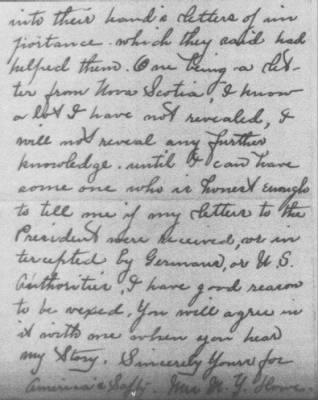 into their hand's letters of im
portance. which they said had
helped them. One being a let-
ter from Nova Scotia, I know
a lot I have not revealed, I
will not reveal any further
knowledge. until I can have
some one who is honest enough
to tell me if my letters to the
President were received, or in
tercepted by Germans, or U.S.
Authorities, I have good reason
to be vexed. You will agree in
it with one when you hear
my Story. Sincerely Yours for
America's Safty. Mrs N. Y. Howe.